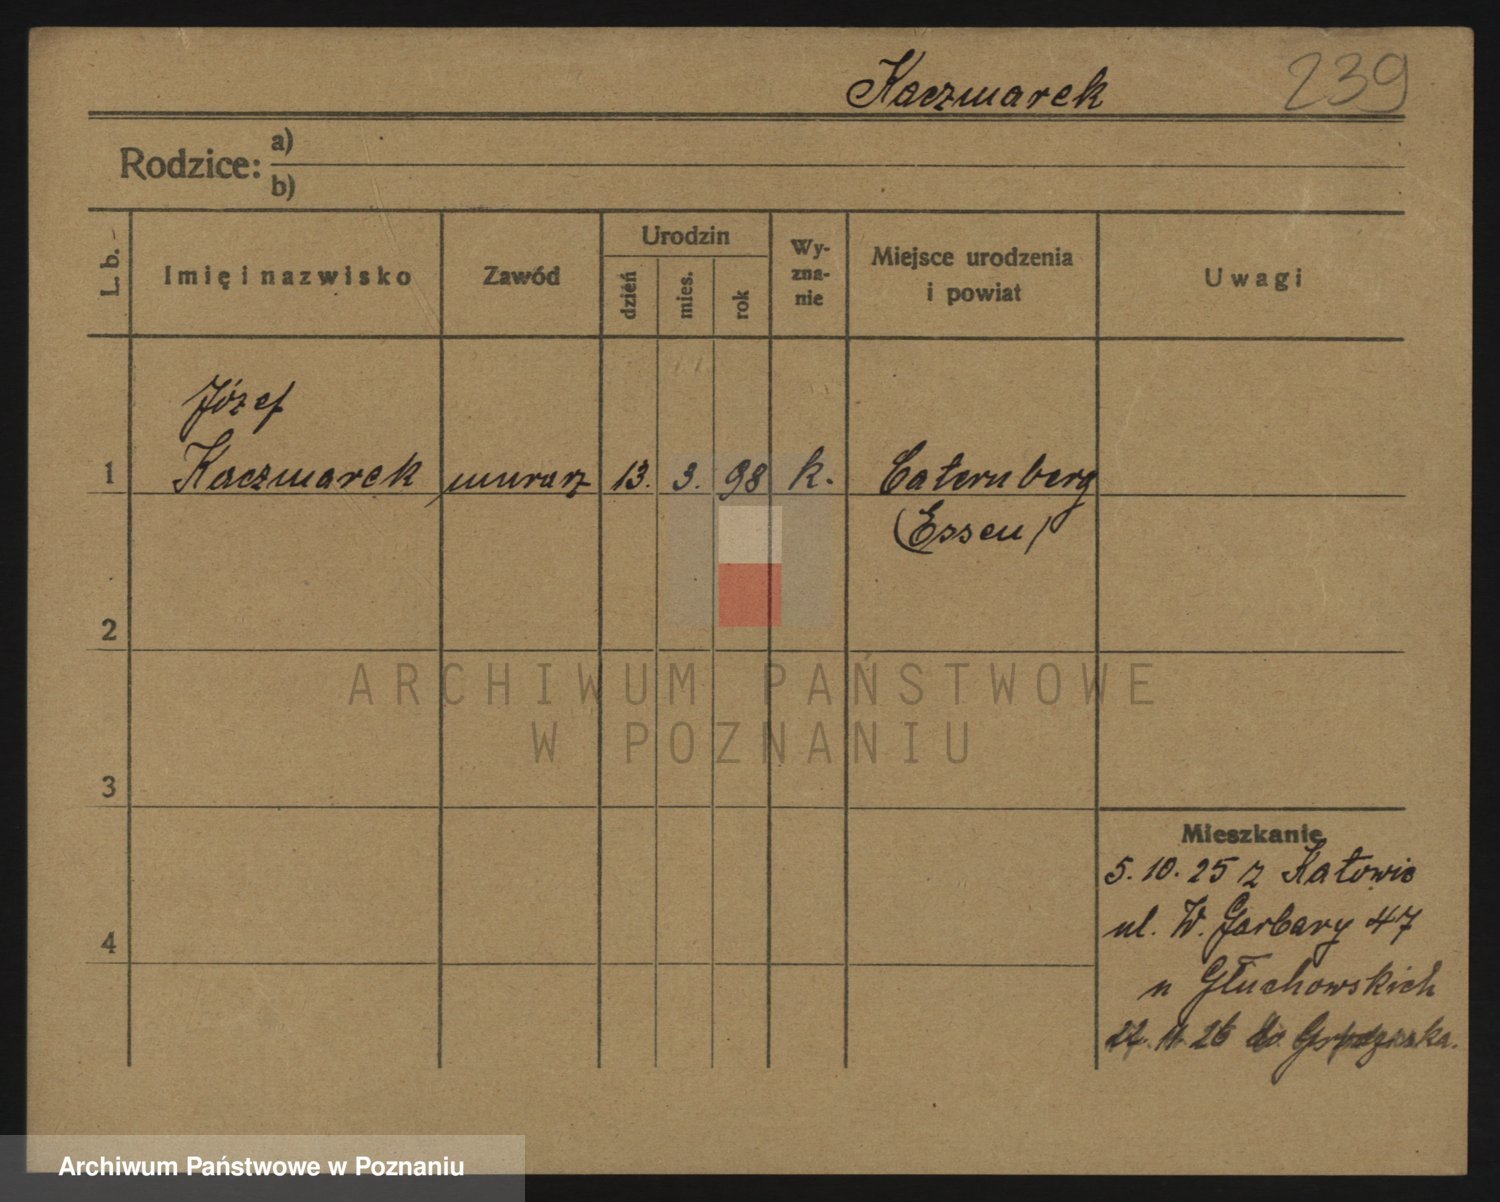 Kaczmarek 239
Rodzice: a)
b)
L. b. Imię i nazwisko Zawód Urodzin dzień mies. rok Wy-zna-nie Miejsce urodzenia i powiat Uwagi
Józef
1 Kaczmarek murarz 13. 3. 98 k. Caternberg
(Essen)
2
ARCHIWUM PAŃSTWOWE
W POZNANIU
3
Mieszkanie
5.10.25 z Katowic
4 ul. W. Garbary 47
u Głuchowskich
22.11.26 do Grodziska.
Archiwum Państwowe w Poznaniu